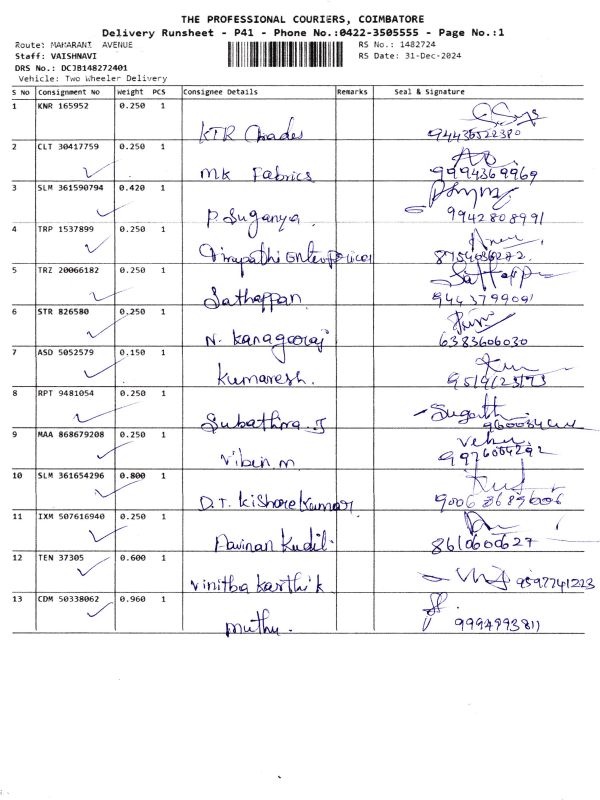 THE PROFESSIONAL COURIERS, COIMBATORE
Delivery Runsheet - P41 - Phone No.:0422-3505555 - Page No.:1
Route: MAHARANI AVENUE RS No.: 1482724
Staff: VAISHNAVI RS Date: 31-Dec-2024
DRS No.: DCJB148272401
Vehicle: Two Wheeler Delivery
S No Consignment No Weight PCS Consignee Details Remarks Seal & Signature
1 KNR 165952 0.250 1
KTR Chades
2 CLT 30417759 0.250 1
MK Fabrics 9994369969
3 SLM 361590794 0.420 1
P. Suganya 9942808991
4 TRP 1537899 0.250 1
Tirupathi Enterprices
5 TRZ 20066182 0.250 1
Sathappan 9443799091
6 STR 826580 0.250 1
N. Kanagaraj 6383606030
7 ASD 5052579 0.150 1
Kumaresh.
8 RPT 9481054 0.250 1
Subathira. J
9 MAA 868679208 0.250 1
Vibin m. 9976004292
10 SLM 361654296 0.800 1
D.T. Kishore Kumar
11 IXM 507616940 0.250 1
Pavinan Kudil. 8610600627
12 TEN 37305 0.600 1
Vinitha Karthik 9597741223
13 CDM 50338062 0.960 1
Muthu. 9994993811